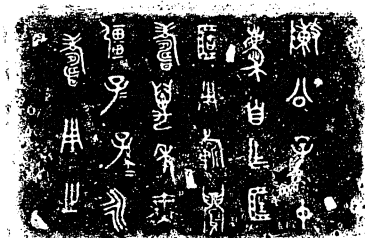 敶公子中
慶自乍匡
簠用祈眉
壽萬年無
疆子子孫孫永
壽用之